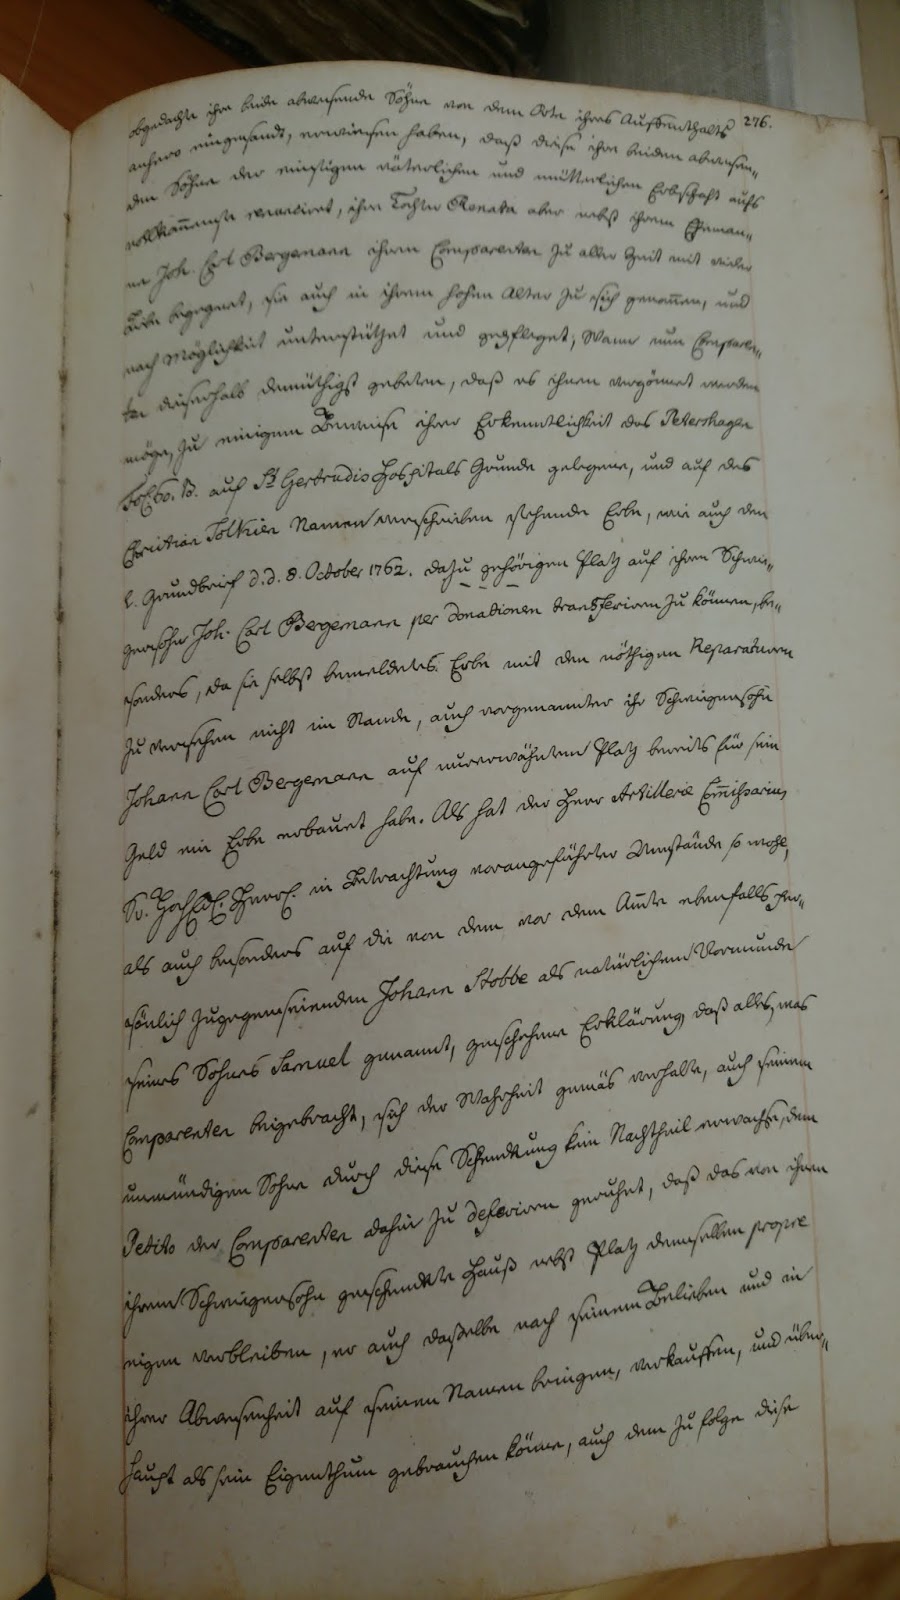 276.
obgedachte ihre beide abwesende Söhne von dem Orte ihres Auffenthalts
anhero eingesandt, erwiesen haben, daß diese ihre beiden abwesen„
den Söhne der einstigen väterlichen und mütterlichen Erbschaft aufs
vollkom̃enste renunciret, ihre Tochter Renata aber nebst ihrem Eheman„
ne Joh. Carl Bergemann ihnen Comparenten zu aller Zeit mit vieler
Liebe begegnet, sie auch in ihrem hohen Alter zu sich genom̃en, und
nach Möglichkeit unterstützet und gepfleget; Wann nun Comparen„
ten dieserhalb demüthigst gebeten, daß es ihnen vergönnet werden
möge, zu einigem Beweise ihrer Erkenntlichkeit das Petershagen
fol. 60. B. auf St Gertrudis Hospitals Grunde gelegene, und auf des
Christian Tolkien Namen verschrieben stehende Erbe, wie auch den
l. Grundbrief d. d. 8. October 1762. dazu gehörigen Platz auf ihren Schwie„
gersohn Joh. Carl Bergemann per Donationem transferiren zu können, be„
sonders, da sie selbst bemeldetes Erbe mit den nöthigen Reparaturen
zu versehen nicht im Stande, auch vorgenannter ihr Schwiegersohn
Johann Carl Bergemann auf nurerwähntem Platz bereits für sein
Geld ein Erbe erbauet habe. Als hat der Herr Artillerie Com̃issarius
Sr. Herrl. in Betrachtung vorangeführter Umstände so wohl,
als auch besonders auf die von dem vor dem Amte ebenfalls per„
sönlich zugegenseienden Johann Stobbe als natürlichem Vormunde
seines Sohnes Samuel genannt, geschehene Erklärung, daß alles, was
Comparenten beigebracht, sich der Wahrheit gemäs verhalte, auch seinem
unmündigen Sohne durch diese Schenkung kein Nachtheil erwachse, dem
Petito der Comparenten dahin zu deferiren geruhet, daß das von ihnen
ihrem Schwiegersohn geschenkte Hauß nebst Platz demselben propre
eigen verbleiben, er auch dasselbe nach seinem Belieben und in
ihrer Abwesenheit auf seinen Namen bringen, verkauffen, und über„
haupt als sein Eigenthum gebrauchen könne, auch dem zu folge diese